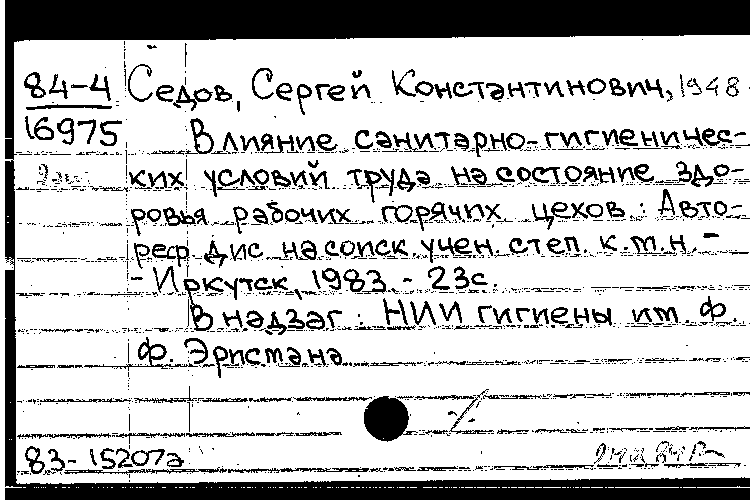 84-4 Седов, Сергей Константинович, 1948-
16975 Влияние санитарно-гигиеничес-
ких условий труда на состояние здо-
ровья рабочих горячих цехов: Авто-
реф дис на соиск. учен. степ. к.т.н. -
- Иркутск, 1983. - 23с.
В надзаг: НИИ гигиены им. Ф.
Ф. Эрисмана
83-15207а